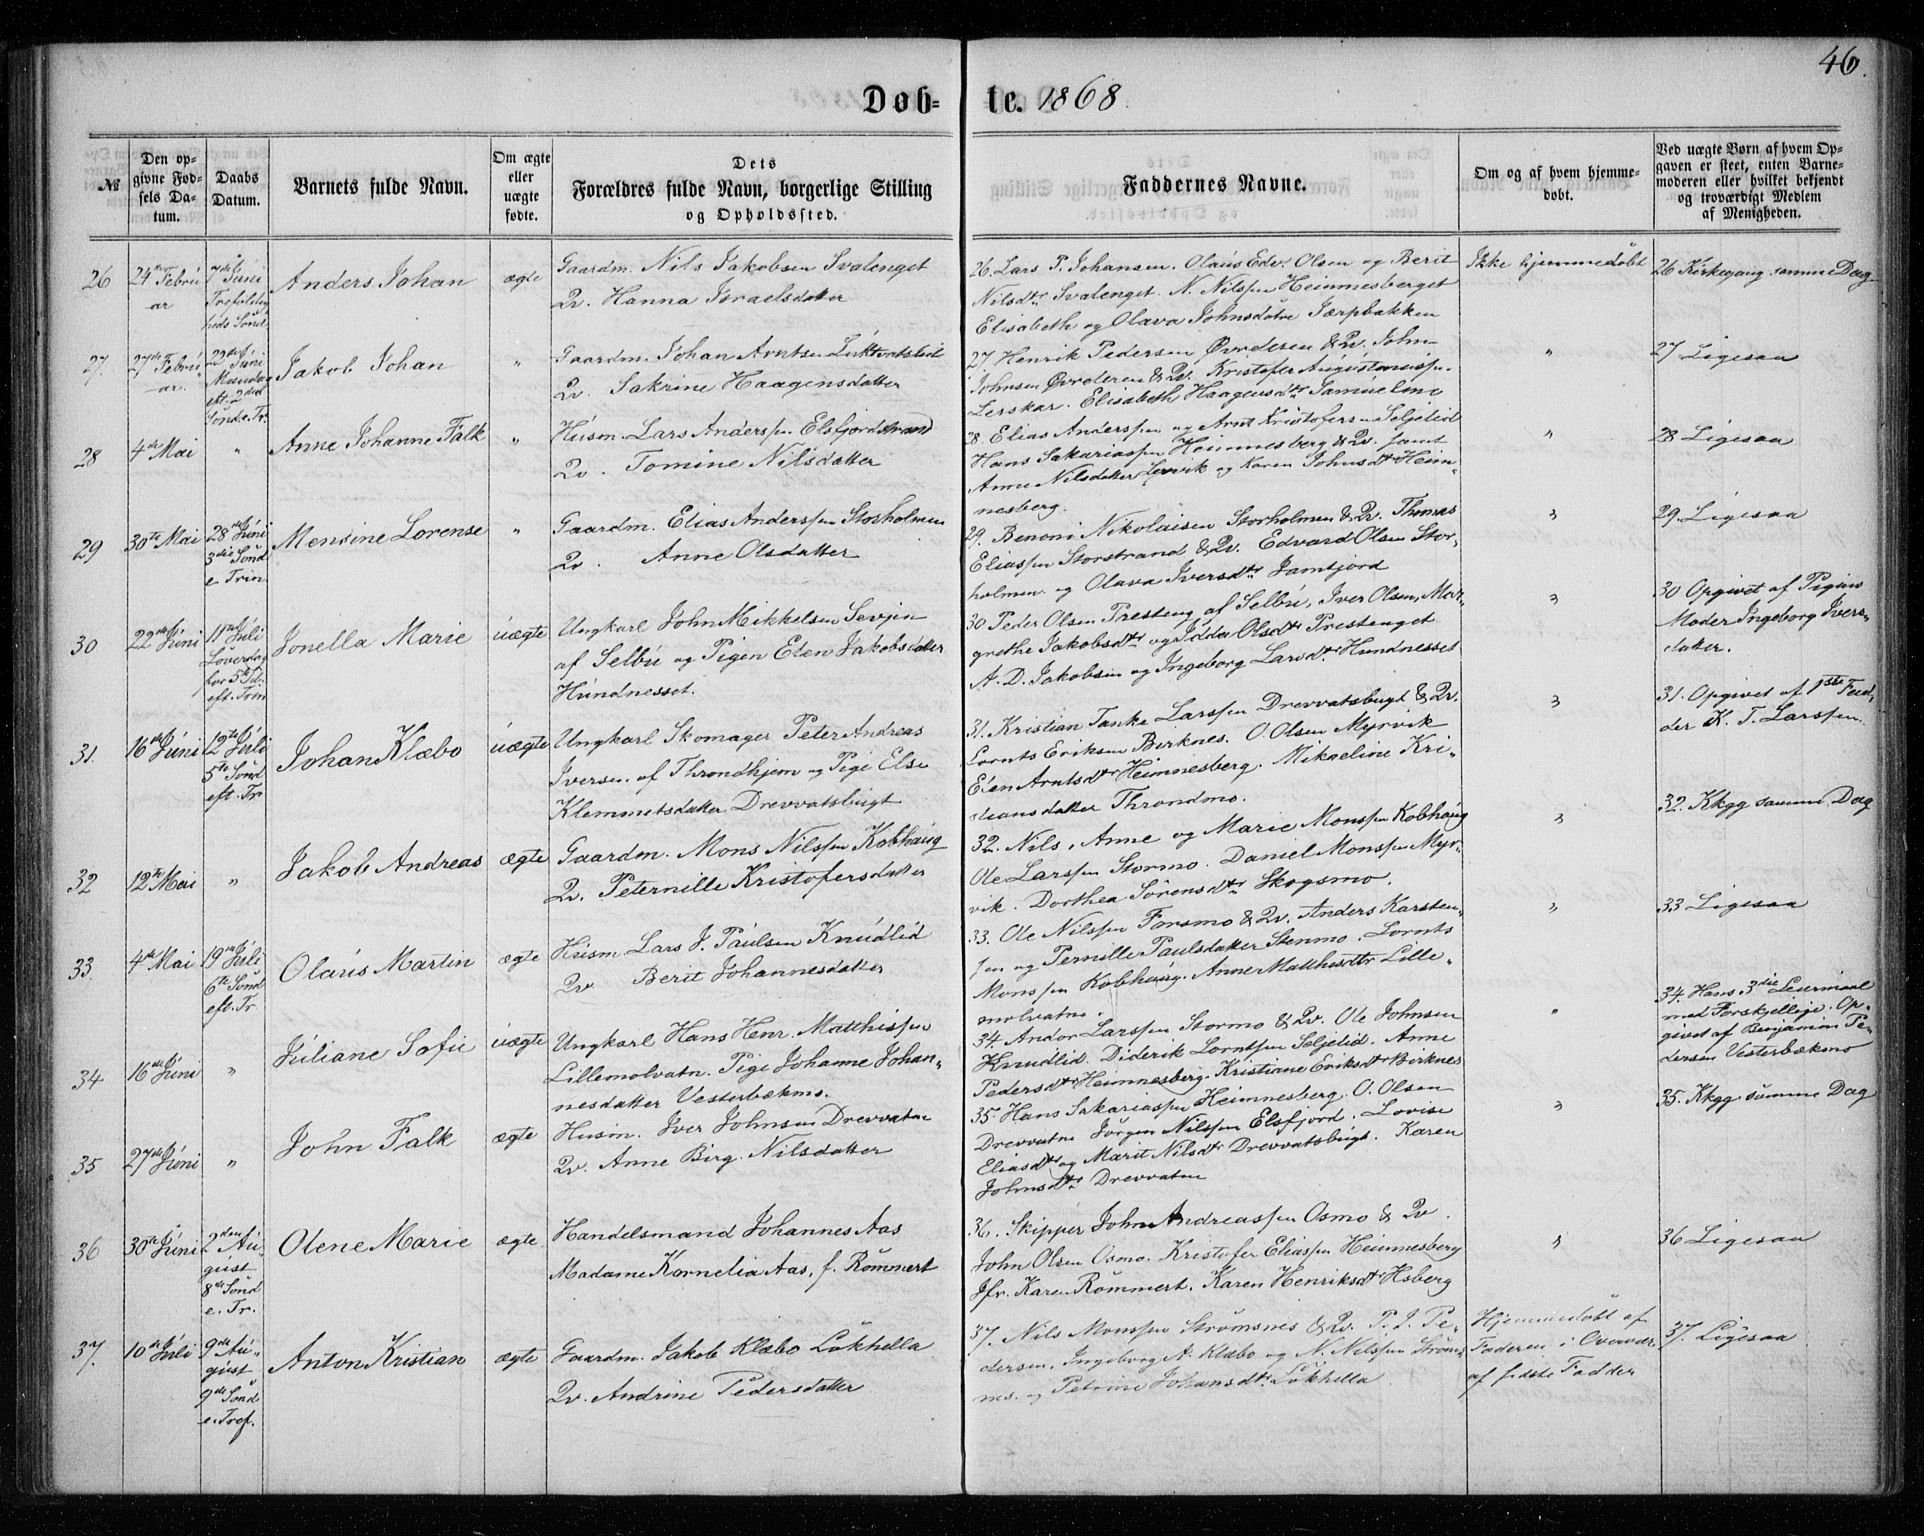 46.
Døb-
te. 1868.
№
Den op-
givne Fød-
sels Da-
tum.
Daabs
Datum.
Barnets fulde Navn.
Om ægte
eller
uægte
fødte.
Dets
Forældres fulde Navn, borgerlige Stilling
og Opholdssted.
Faddernes Navne.
Om og af hvem hjemme-
døbt.
Ved uægte Børn af hvem Op-
gaven er skeet, enten Barne-
moderen eller hvilket bekjendt
og troværdigt Medlem
af Menigheden.
26
24de Febru
ar
7de Juni
Trefoldig
heds Sønd
Anders Johan
ægte
Gaardm. Nils Jakobsen Svalenget
Qv. Hanna Israelsdatter
26. Lars P. Johansen. Olaus Edv. Olsen og Berit
Nilsdtr Svalenget. N. Nilssen Heimnesberget
Elisabeth og Olava Johnsdøtre Jærpbakken
Ikke hjemmedøbt
26 Kirkegang samme Dag
27.
27de Febru
ar.
22de Juni
Mandag
eft. 2den
Sønd. e. Tr.
Jakob Johan
"
Gaardm. Johan Arntsen
Qv. Sakrine Haagensdatter
27 Henrik Pedersen Øvrderen & Qv. John
Johnsen Øvrderen & Qv. Kristofer
Lerskar. Elisabeth Haagensdtr Samueline
"
27 Ligesaa
28
4de Mai
"
Anne Johanne Falk
"
Husm. Lars Anderssen Elsfjordstrand
Qv. Tomine Nilsdatter
28. Elias Anderssen og Arnt Kristofersen Seljelid
Hans Sakariassen Heimnesberg & Qv. samt
Anne Nilsdatter Lervik og Karen Johnsdtr Heim-
nesberg.
"
28 Ligesaa
29
30te Mai
28de Juni
3die Sønd
e. Trin
Mensine Lorense
"
Gaardm. Elias Anderssen Storholmen
Qv. Anne Olsdatter
29. Benoni Nikolaisen Storholmen & Qv. Thomas
Eliassen Storstrand & Qv. Edvard Olsen Stor-
holmen og Olava Iversdtr Jamtjord
"
29. Ligesaa
30
22de Juni
11te Juli
Løverdag
før 5te S.
eft. Trin
Jonella Marie
uægte
Ungkarl John Mikkelsen Sevjen
af Selbu og Pigen Elen Jakobsdatter
Hundnesset.
30 Peder Olsen Presteng af Selbu, Iver Olsen, Mar-
grethe Jakobsdtr og Idda Olsdtr Prestenget
A. D. Jakobsen og Ingeborg Larsdtr Hundnesset
"
30 Opgivet af Pigens
Moder Ingeborg Ivers-
datter.
31.
16de Juni
12te Juli
5te Sønd
eft. Tr
Johan Klæbo
uægte
Ungkarl Skomager Peter Andreas
Iversen af Throndhjem og Pige Else
Klemmetsdatter Drevvatsbugt
31. Kristian Tanke Larssen Drevvatsbugt & Qv.
Lornts Eriksen Birknes. O. Olsen Myrvik
Elen Arntsdtr Heimnesberg. Mikaeline Kri-
stiansdatter Throndmo.
"
31. Opgivet af 1ste Fad-
der K. T. Larssen
32
12te Mai
"
Jakob Andreas
ægte
Gaardm. Mons Nilssen Kobhaug
Qv. Peternille Kristofersdatter
32. Nils, Anne og Marie Monssen Kobhaug
Ole Larssen Stormo. Daniel Monssen Myr-
vik. Dorthea Sørensdtr Skogsmo.
"
32. Kkgg samme Dag
33.
4de Mai
19de Juli
6te Sønd
eft. Tr
Olaus Martin
ægte
Husm Lars J. Paulsen Knudlid
Qv Berit Johannesdatter
33. Ole Nilssen Forsmo & Qv. Anders Karsten-
sen og Pernille Paulsdatter Stenmo. Lornts
Monssen Kobhaug. Anne Matthisdtr Lille-
molvatne.
"
33 Ligesaa
34
16de Juni
"
Juliane Sofie
uægte
Ungkarl Hans Henr. Matthissen
Lillemolvatn. Pige Johanne Johan-
nesdatter Vesterbækmo.
34. Andor Larssen Stormo & Qv. Ole Johnsen
Knudlid. Diderik Lorntsen Seljelid. Anne
Pedersdtr Heimnesberg. Kristiane Eriksdtr Birknes
"
34. Hans 3die Leiermaal
med Forskjellige. Op-
givet af Benjamin Pe-
dersen Vesterbækmo
35
27de Juni
"
John Falk
ægte
Husm. Iver Johnsen Drevvatne
Qv. Anne Birg. Nilsdatter
35 Hans Sakariassen Heimnesberg. O. Olsen
Drevvatne Jørgen Nilssen Elsfjord. Lovise
Eliasdtr og Marit Nilsdtr Drevvatsbugt. Karen
Johnsdtr Drevvatne
"
35. Kkgg samme Dag
36
30te Juni
2den Au-
gust
8de Sønd
e. Tr.
Olene Marie
ægte
Handelsmand Johannes Aas
Madame Kornelia Aas, f. Rømmert
36. Skipper John Andreassen Osmo & Qv.
John Olsen Osmo. Kristofer Eliassen Heimnesberg
Jfr. Karen Rømmert. Karen Henriksdtr Hsberg
"
36 Ligesaa
37.
10de Juli
9de Au-
gust
9de Sønd
e. Tref.
Anton Kristian
ægte
Gaardm. Jakob Klæbo Løkhella
Qv. Andrine Pedersdatter
37. Nils Monssen Strømsnes & Qv. P. J. Pe-
dersen. Ingeborg A. Klæbo og N. Nilssen Strøm-
ms. og Petrine Johansdtr Løkhella.
Hjemmedøbt af
Faderen i Overvær
af sidste Fadder
37. Ligesaa